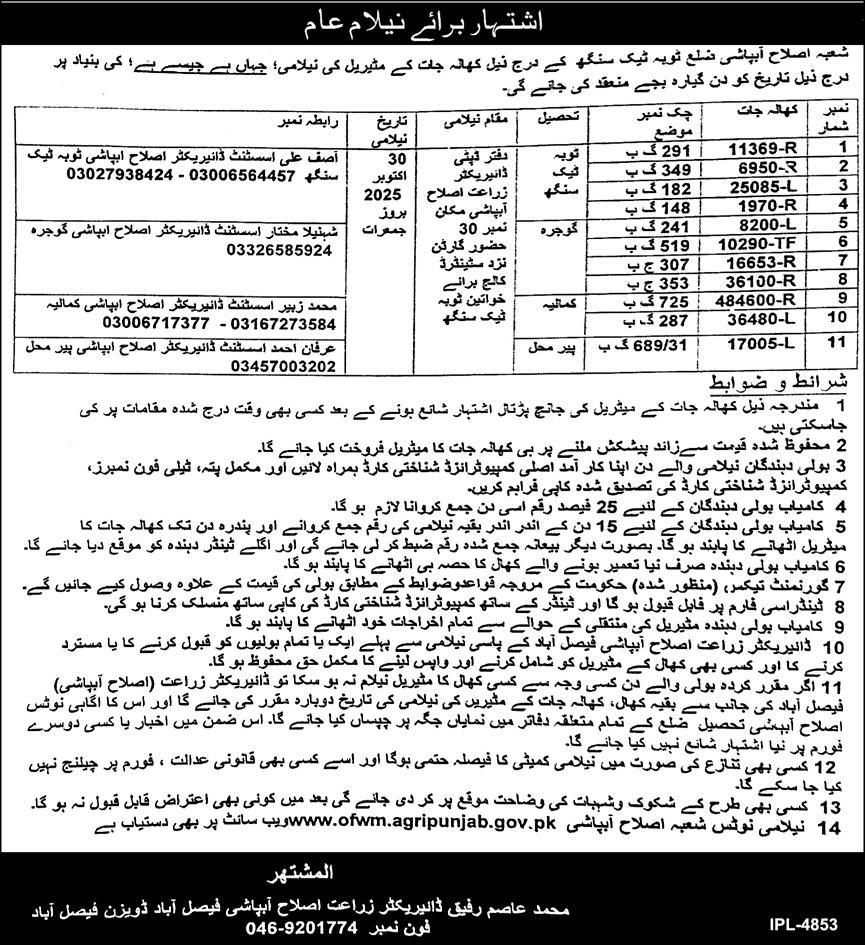 اشتہار برائے نیلام عام
شعبہ اصلاح آبپاشی ضلع ٹوبہ ٹیک سنگھ کے درج ذیل کھالہ جات کے مٹیریل کی نیلامی؛ جہاں ہے جیسے ہے؛ کی بنیاد پر
درج ذیل تاریخ کو دن گیارہ بجے منعقد کی جائے گی۔
نمبر شمار | کھالہ جات | چک نمبر موضع | تحصیل | مقام نیلامی | تاریخ نیلامی | رابطہ نمبر
1 | 11369-R | 291 گ ب | ٹوبہ ٹیک سنگھ | دفتر ڈپٹی ڈائیریکٹر زراعت اصلاح آبپاشی مکان نمبر 30 حضور گارڈن نزد سٹینڈرڈ کالج برائے خواتین ٹوبہ ٹیک سنگھ | 30 اکتوبر 2025 بروز جمعرات | آصف علی اسسٹنٹ ڈائیریکٹر اصلاح آبپاشی ٹوبہ ٹیک سنگھ 03006564457 - 03027938424
2 | 6950-R | 349 گ ب
3 | 25085-L | 182 گ ب
4 | 1970-R | 148 گ ب
5 | 8200-L | 241 گ ب | گوجرہ | شہنیلا مختار اسسٹنٹ ڈائیریکٹر اصلاح آبپاشی گوجرہ 03326585924
6 | 10290-TF | 519 گ ب
7 | 16653-R | 307 ج ب
8 | 36100-R | 353 ج ب
9 | 484600-R | 725 گ ب | کمالیہ | محمد زبیر اسسٹنٹ ڈائیریکٹر اصلاح آبپاشی کمالیہ 03167273584 - 03006717377
10 | 36480-L | 287 گ ب
11 | 17005-L | 689/31 گ ب | پیر محل | عرفان احمد اسسٹنٹ ڈائیریکٹر اصلاح آبپاشی پیر محل 03457003202
شرائط و ضوابط
1 مندرجہ ذیل کھالہ جات کے میٹریل کی جانچ پڑتال اشتہار شائع ہونے کے بعد کسی بھی وقت درج شدہ مقامات پر کی
جاسکتی ہیں۔
2 محفوظ شدہ قیمت سے زائد پیشکش ملنے پر ہی کھالہ جات کا میٹریل فروخت کیا جائے گا۔
3 بولی دہندگان نیلامی والے دن اپنا کار آمد اصلی کمپیوٹرائزڈ شناختی کارڈ ہمراہ لائیں اور مکمل پتہ، ٹیلی فون نمبرز،
کمپیوٹرائزڈ شناختی کارڈ کی تصدیق شدہ کاپی فراہم کریں۔
4 کامیاب بولی دہندگان کے لئیے 25 فیصد رقم اسی دن جمع کروانا لازم ہو گا۔
5 کامیاب بولی دہندگان کے لئیے 15 دن کے اندر اندر بقیہ نیلامی کی رقم جمع کروانے اور پندرہ دن تک کھالہ جات کا
میٹریل اٹھانے کا پابند ہو گا۔ بصورت دیگر بیعانہ جمع شدہ رقم ضبط کر لی جائے گی اور اگلے ٹینڈر دہندہ کو موقع دیا جائے گا۔
6 کامیاب بولی دہندہ صرف نیا تعمیر ہونے والے کھال کا حصہ ہی اٹھانے کا پابند ہو گا۔
7 گورنمنٹ ٹیکسز، (منظور شدہ) حکومت کے مروجہ قواعدوضوابط کے مطابق بولی کی قیمت کے علاوہ وصول کیے جائیں گے۔
8 ٹینڈراسی فارم پر قابل قبول ہو گا اور ٹینڈر کے ساتھ کمپیوٹرائزڈ شناختی کارڈ کی کاپی ساتھ منسلک کرنا ہو گی۔
9 کامیاب بولی دہندہ مٹیریل کی منتقلی کے حوالے سے تمام اخراجات خود اٹھانے کا پابند ہو گا۔
10 ڈائیریکٹر زراعت اصلاح آبپاشی فیصل آباد کے پاسی نیلامی سے پہلے ایک یا تمام بولیوں کو قبول کرنے کا یا مسترد
کرنے کا اور کسی بھی کھال کے مٹیریل کو شامل کرنے اور واپس لینے کا مکمل حق محفوظ ہو گا۔
11 اگر مقرر کردہ بولی والے دن کسی وجہ سے کسی کھال کا مٹیریل نیلام نہ ہو سکا تو ڈائیریکٹر زراعت (اصلاح آبپاشی)
فیصل آباد کی جانب سے بقیہ کھال، کھالہ جات کے مٹیریں کی نیلامی کی تاریخ دوبارہ مقرر کی جائے گا اور اس کا آگاہی نوٹس
اصلاح آبپشی تحصیل ضلع کے تمام متعلقہ دفاتر میں نمایاں جگہ پر چسپاں کیا جائے گا۔ اس ضمن میں اخبار یا کسی دوسرے
فورم پر نیا اشتہار شائع نہیں کیا جائے گا۔
12 کسی بھی تنازع کی صورت میں نیلامی کمیٹی کا فیصلہ حتمی ہوگا اور اسے کسی بھی قانونی عدالت ، فورم پر چیلنج نہیں
کیا جا سکے گا۔
13 کسی بھی طرح کے شکوک وشبہات کی وضاحت موقع پر کر دی جائے گی بعد میں کوئی بھی اعتراض قابل قبول نہ ہو گا۔
14 نیلامی نوٹس شعبہ اصلاح آبپاشی www.ofwm.agripunjab.gov.pk ویب سائٹ پر بھی دستیاب ہے
المشتھر
محمد عاصم رفیق ڈائیریکٹر زراعت اصلاح آبپاشی فیصل آباد ڈویژن فیصل آباد
فون نمبر 046-9201774
IPL-4853